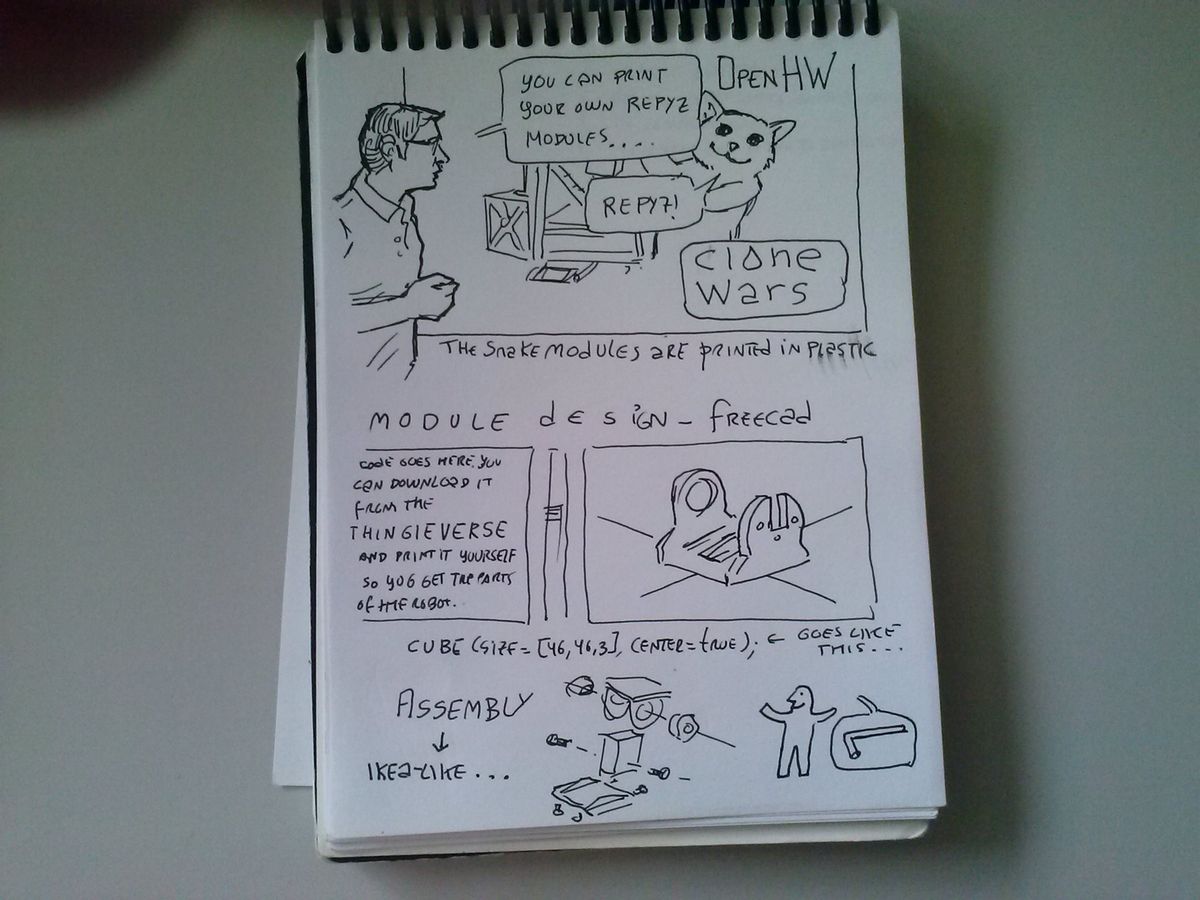 OPENHW
YOU CAN PRINT
YOUR OWN REPYZ
MODULES....
REPYZ!
clone
wars
THE SNAKE MODULES ARE PRINTED IN PLASTIC
MODULE dESIGN - fREECAd
CODE GOES HERE. YOU
CAN DOWNLOAD IT
FROM THE
THINGIEVERSE
AND PRINT IT YOURSELF
SO YOU GET THE PARTS
OF THE ROBOT.
CUBE (SIZE = [46,46,3], CENTER = TRUE); ← GOES LIKE
THIS...
ASSEMBLY
↓
IKEA-LIKE...